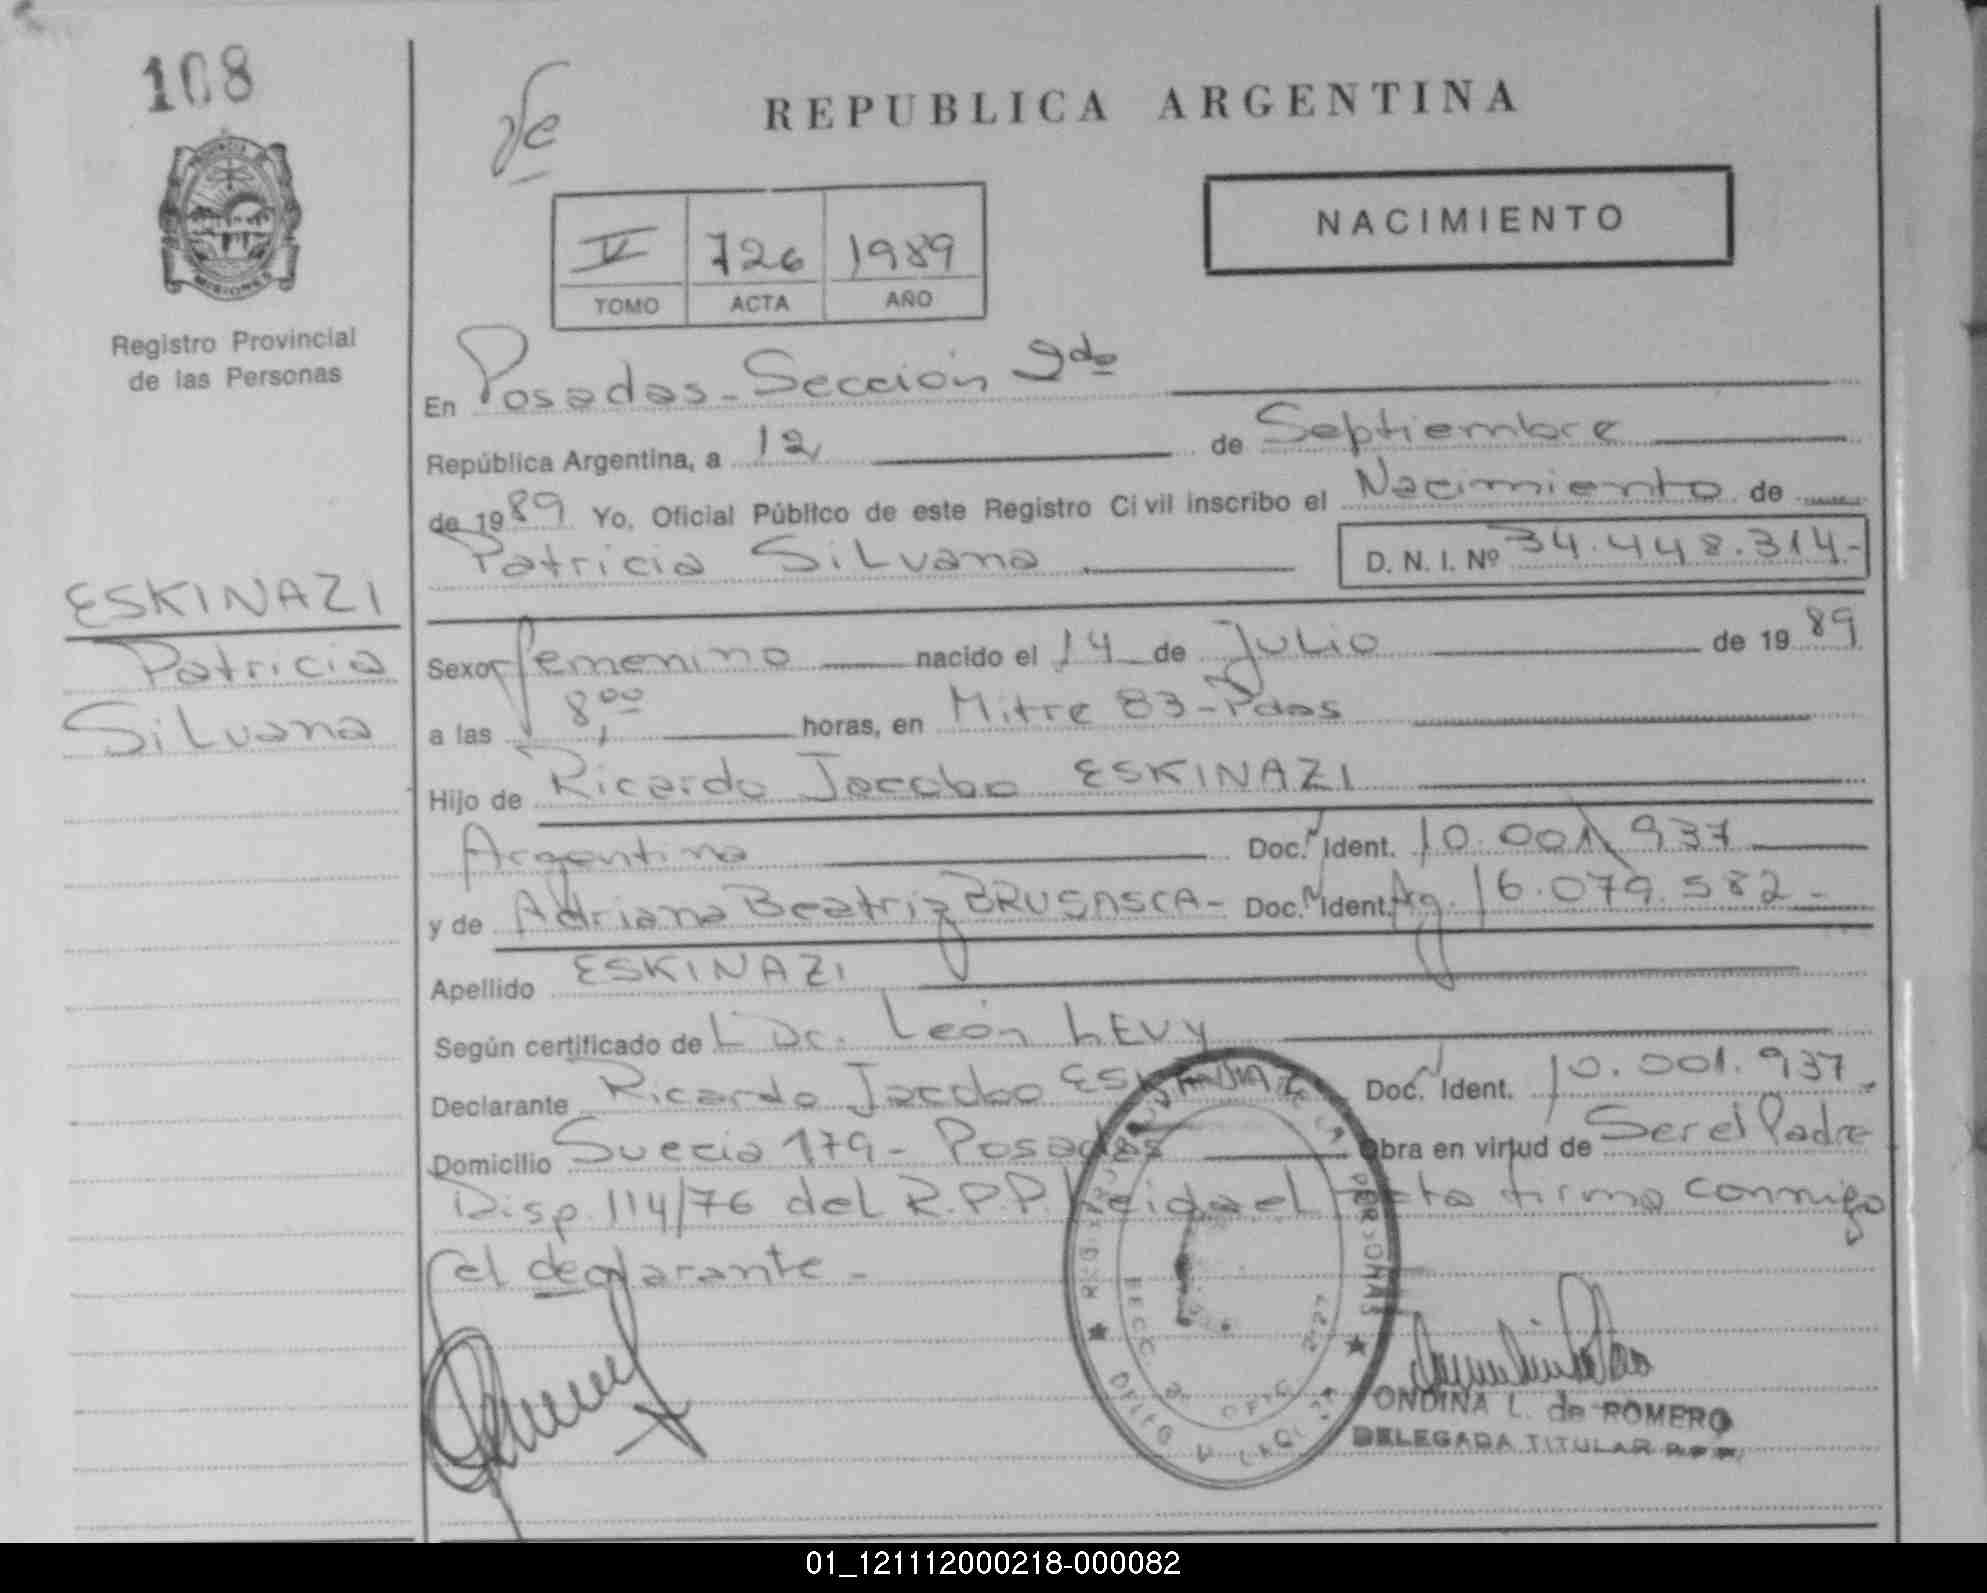 108
REPUBLICA ARGENTINA
NACIMIENTO
V 726 1989
TOMO ACTA AÑO
PROVINCIA DE
MISIONES
Registro Provincial
de las Personas
En Posadas - Sección 2da
República Argentina, a 12 de Septiembre
de 1989 Yo, Oficial Público de este Registro Civil inscribo el Nacimiento de
Patricia Silvana D. N. I. Nº 34.448.314-
ESKINAZI
Patricia
Silvana
Sexo femenino nacido el 14 de Julio de 1989
a las 8,00 horas, en Mitre 83 - Pdas
Hijo de Ricardo Jacobo ESKINAZI
Argentina Doc. Ident. 10.001.937
y de Adriana Beatriz BRUSASCA - Doc. Ident. Arg. 16.079.582 -
Apellido ESKINAZI
Según certificado de L Dr. León LEVY
Declarante Ricardo Jacobo ESKINAZI Doc. Ident. 10.001.937
Domicilio Suecia 179 - Posadas Obra en virtud de Ser el Padre
Disp. 114/76 del R.P.P. Leida el acta firma conmigo
el declarante -
PERSONAS
ONDINA L. de ROMERO
DELEGADA TITULAR
01_121112000218-000082